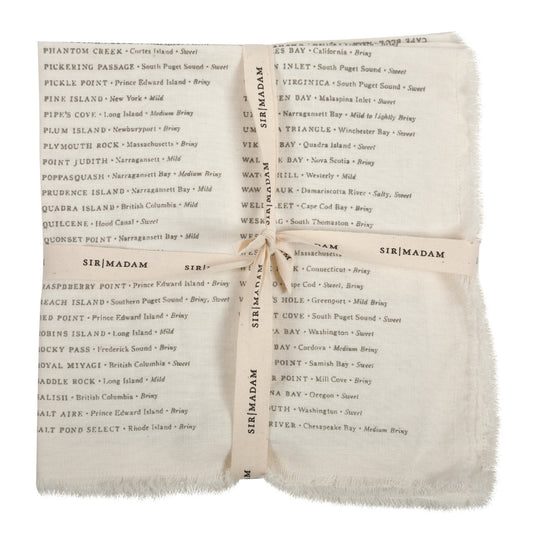 PHANTOM CREEK • Cortes Island • Sweet
PICKERING PASSAGE • South Puget Sound • Sweet
PICKLE POINT • Prince Edward Island • Briny
PINE ISLAND • New York • Mild
PIPE'S COVE • Long Island • Medium Briny
PLUM ISLAND • Newburyport • Briny
PLYMOUTH ROCK • Massachusetts • Briny
POINT JUDITH • Narragansett • Mild
POPPASQUASH • Narragansett Bay • Medium Briny
PRUDENCE ISLAND • Narragansett Bay • Mild
QUADRA ISLAND • British Columbia • Mild
QUILCENE • Hood Canal • Sweet
QUONSET POINT • Narragansett Bay • Mild
RASPBERRY POINT • Prince Edward Island • Briny
BEACH ISLAND • Southern Puget Sound • Briny, Sweet
RED POINT • Prince Edward Island • Briny
ROBINS ISLAND • Long Island • Mild
ROCKY PASS • Frederick Sound • Briny
ROYAL MIYAGI • British Columbia • Sweet
SADDLE ROCK • Long Island • Mild
SALISH • British Columbia • Briny
SALT AIRE • Prince Edward Island • Briny
SALT POND SELECT • Rhode Island • Briny
BAY • California • Briny
INLET • South Puget Sound • Sweet
VIRGINICA • South Puget Sound • Sweet
BAY • Malaspina Inlet • Sweet
Narragansett Bay • Mild to Lightly Briny
TRIANGLE • Winchester Bay • Sweet
Quadra Island • Sweet
BAY • Nova Scotia • Briny
HILL • Westerly • Mild
Damariscotta River • Salty, Sweet
Cape Cod Bay • Briny
South Thomaston • Briny
Massachusetts
Connecticut • Briny
Cape Cod • Sweet, Briny
HOLE • Greenport • Mild
COVE • South Puget Sound • Sweet
BAY • Washington • Sweet
BAY • Cordova • Medium Briny
POINT • Samish Bay • Sweet
POINT • Mill Cove • Briny
BAY • Oregon • Sweet
Washington • Sweet
RIVER • Chesapeake Bay • Medium Briny
SIR|MADAM
SIR|MADAM
SIR|MADAM
SIR|MADAM
SIR|MADAM
SIR|MADAM